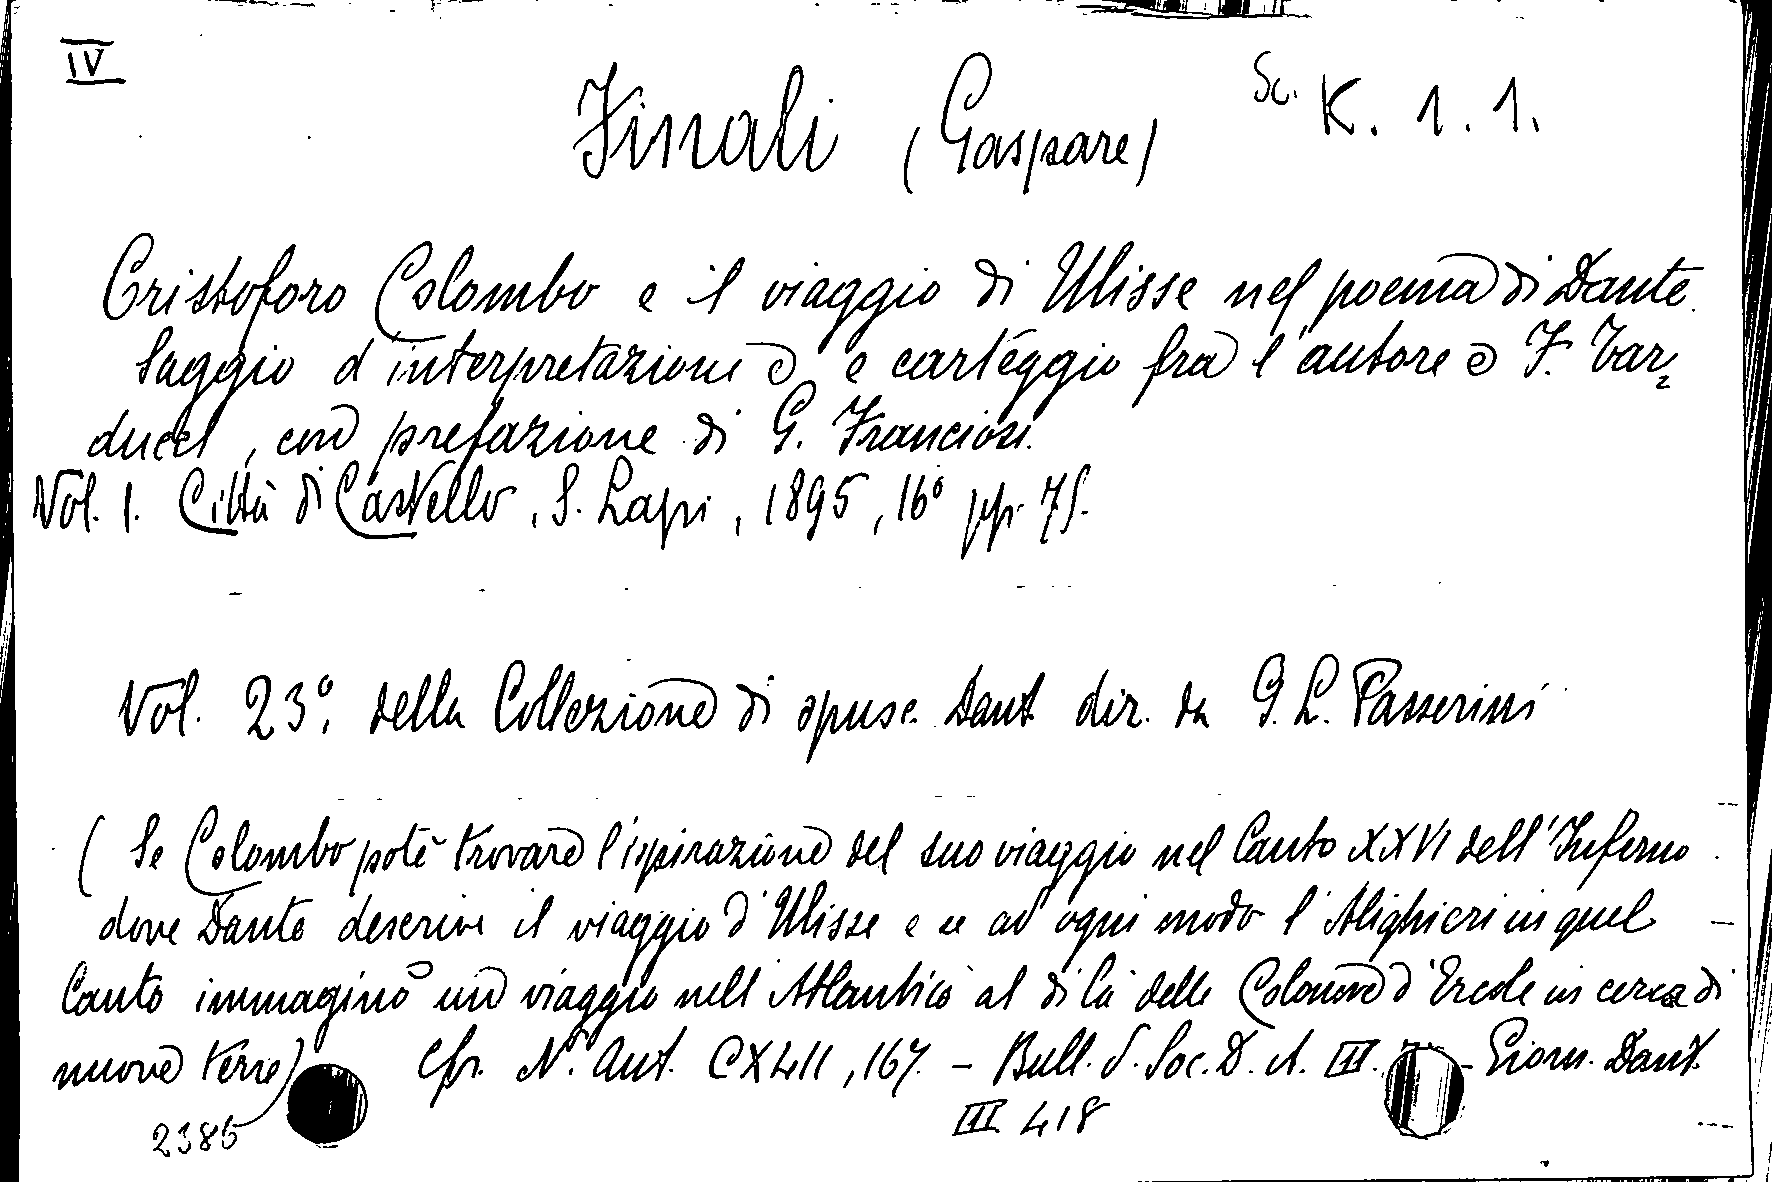 IV
Finali (Gaspare)
Sc. K. 1. 1.
Cristoforo Colombo e il viaggio di Ulisse nel poema di Dante.
Saggio d'interpretazione e carteggio fra l'autore e F. Tar=
ducci, con prefazione di G. Franciosi.
Vol. 1. Città di Castello, S. Lapi, 1895, 16° pp. 75.
Vol. 23°. della Collezione di opusc. Dant. dir. da G. L. Passerini
(Se Colombo potè trovare l'ispirazione del suo viaggio nel Canto XXVI dell'Inferno
dove Dante descrive il viaggio d'Ulisse e se ad ogni modo l'Alighieri in quel
Canto immaginò un viaggio nell'Atlantico al di là delle Colonne d'Ercole in cerca di
nuove terre) Cfr. N. Ant. CXLII, 167. - Bull. d. Soc. D. it. III. - Giorn. Dant.
III 418
2385